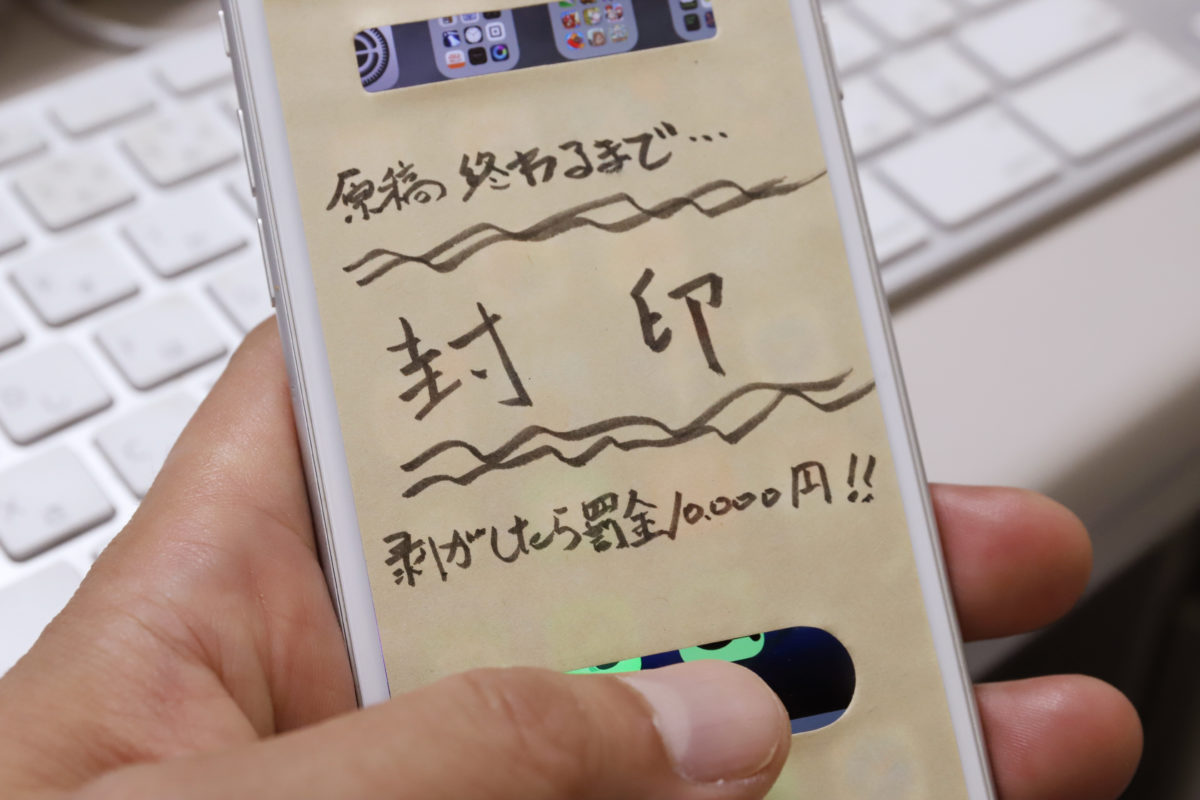 原稿 終わるまで…
封印
剥がしたら罰金10.000円!!